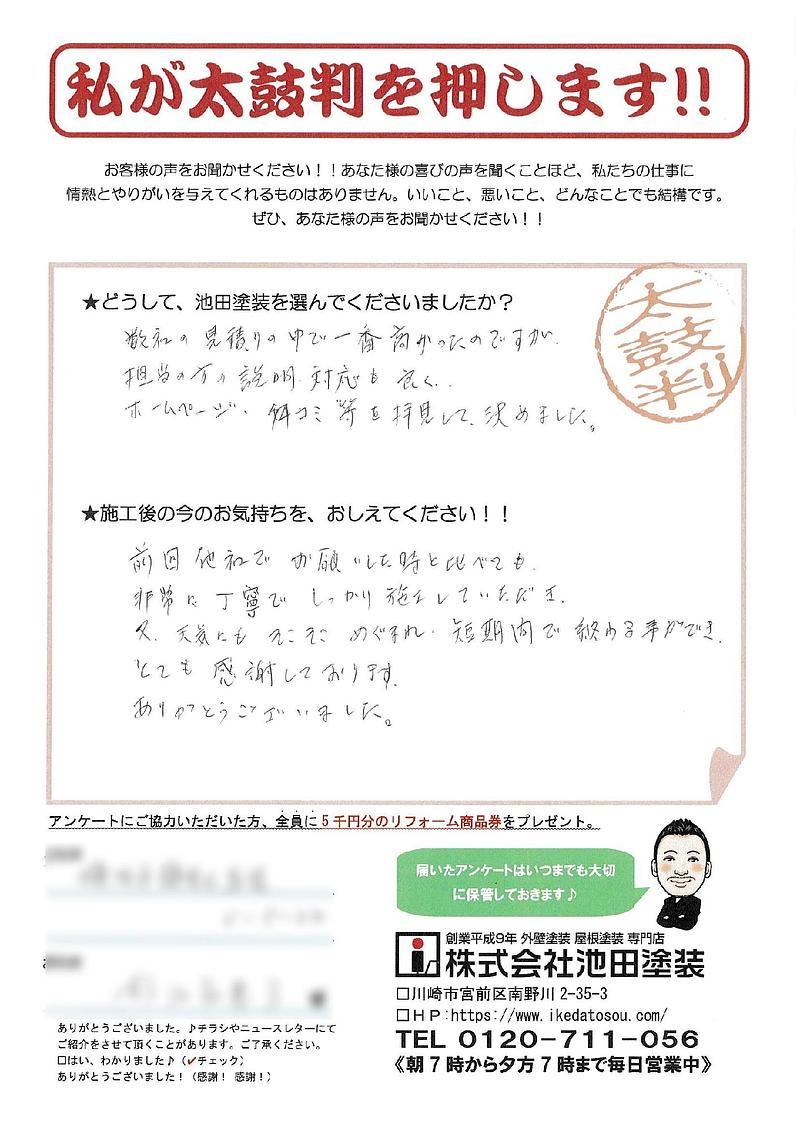 私が太鼓判を押します!!
お客様の声をお聞かせください！！あなた様の喜びの声を聞くことほど、私たちの仕事に
情熱とやりがいを与えてくれるものはありません。いいこと、悪いこと、どんなことでも結構です。
ぜひ、あなた様の声をお聞かせください！！
太鼓判
★どうして、池田塗装を選んでくださいましたか？
数社の見積りの中で一番高かったのですが、
担当の方の説明、対応も良く、
ホームページ、口コミ等を拝見して、決めました。
★施工後の今のお気持ちを、おしえてください！！
前回他社でお願いした時と比べても、
非常に丁寧でしっかり施工していただき、
又、天気にもそこそこめぐまれ、短期間で終わる事ができ、
とても感謝しております。
ありがとうございました。
アンケートにご協力いただいた方、全員に5千円分のリフォーム商品券をプレゼント。
届いたアンケートはいつまでも大切
に保管しておきます♪
創業平成9年 外壁塗装 屋根塗装 専門店
株式会社池田塗装
□川崎市宮前区南野川2-35-3
□ＨＰ:https://www.ikedatosou.com/
TEL 0120-711-056
《朝7時から夕方7時まで毎日営業中》
ありがとうございました。♪チラシやニュースレターにて
ご紹介をさせて頂くことがあります。ご了承ください。
□はい、わかりました♪（✓チェック）
ありがとうございました！（感謝！感謝！）